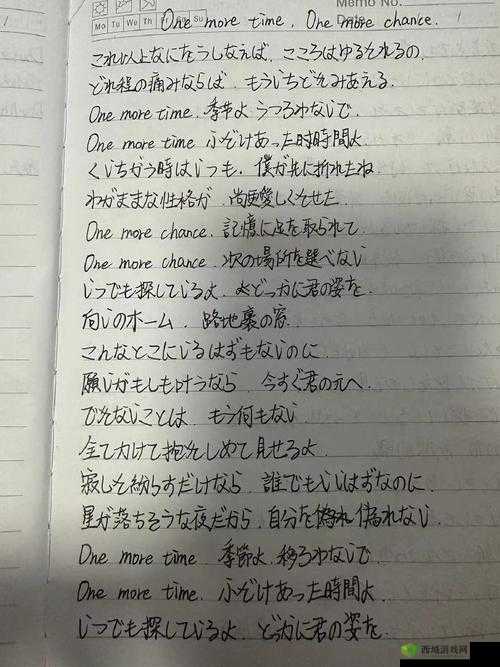 Memo No.
Mo Tu We Th Fri Sa Su
Date
One more time, One more chance.
これ以上なにをうしなえば、こころはゆるされるの、
どれ程の痛みならば、もういちどきみあえる.
One more time. 季節ようつろわないで.
One more time ふざけあった时時間よ
くいちがう時はいつも、僕が先に折れたね
わがままな性格が、尚更愛しくさせた.
One more chance. 記憶に足を取られて
One more chance. 次の場所を選べない
いつでも探しているよ どっかに君の姿を.
向いのホーム、路地裏の窓.
こんなとこにいるはずもないのに
願いがもしも叶うなら 今すぐ君の元へ.
できないことは もう何もない
全てかけて抱きしめて見せるよ
寂しさ紛らすだけなら 誰でもいいはずなのに.
星が落ちそうな夜だから、自分を偽れない
One more time 季節よ、移ろわないで.
One more time. ふざけあった時間よ.
いつでも探しているよ どっかに君の姿を.
西域游戏网